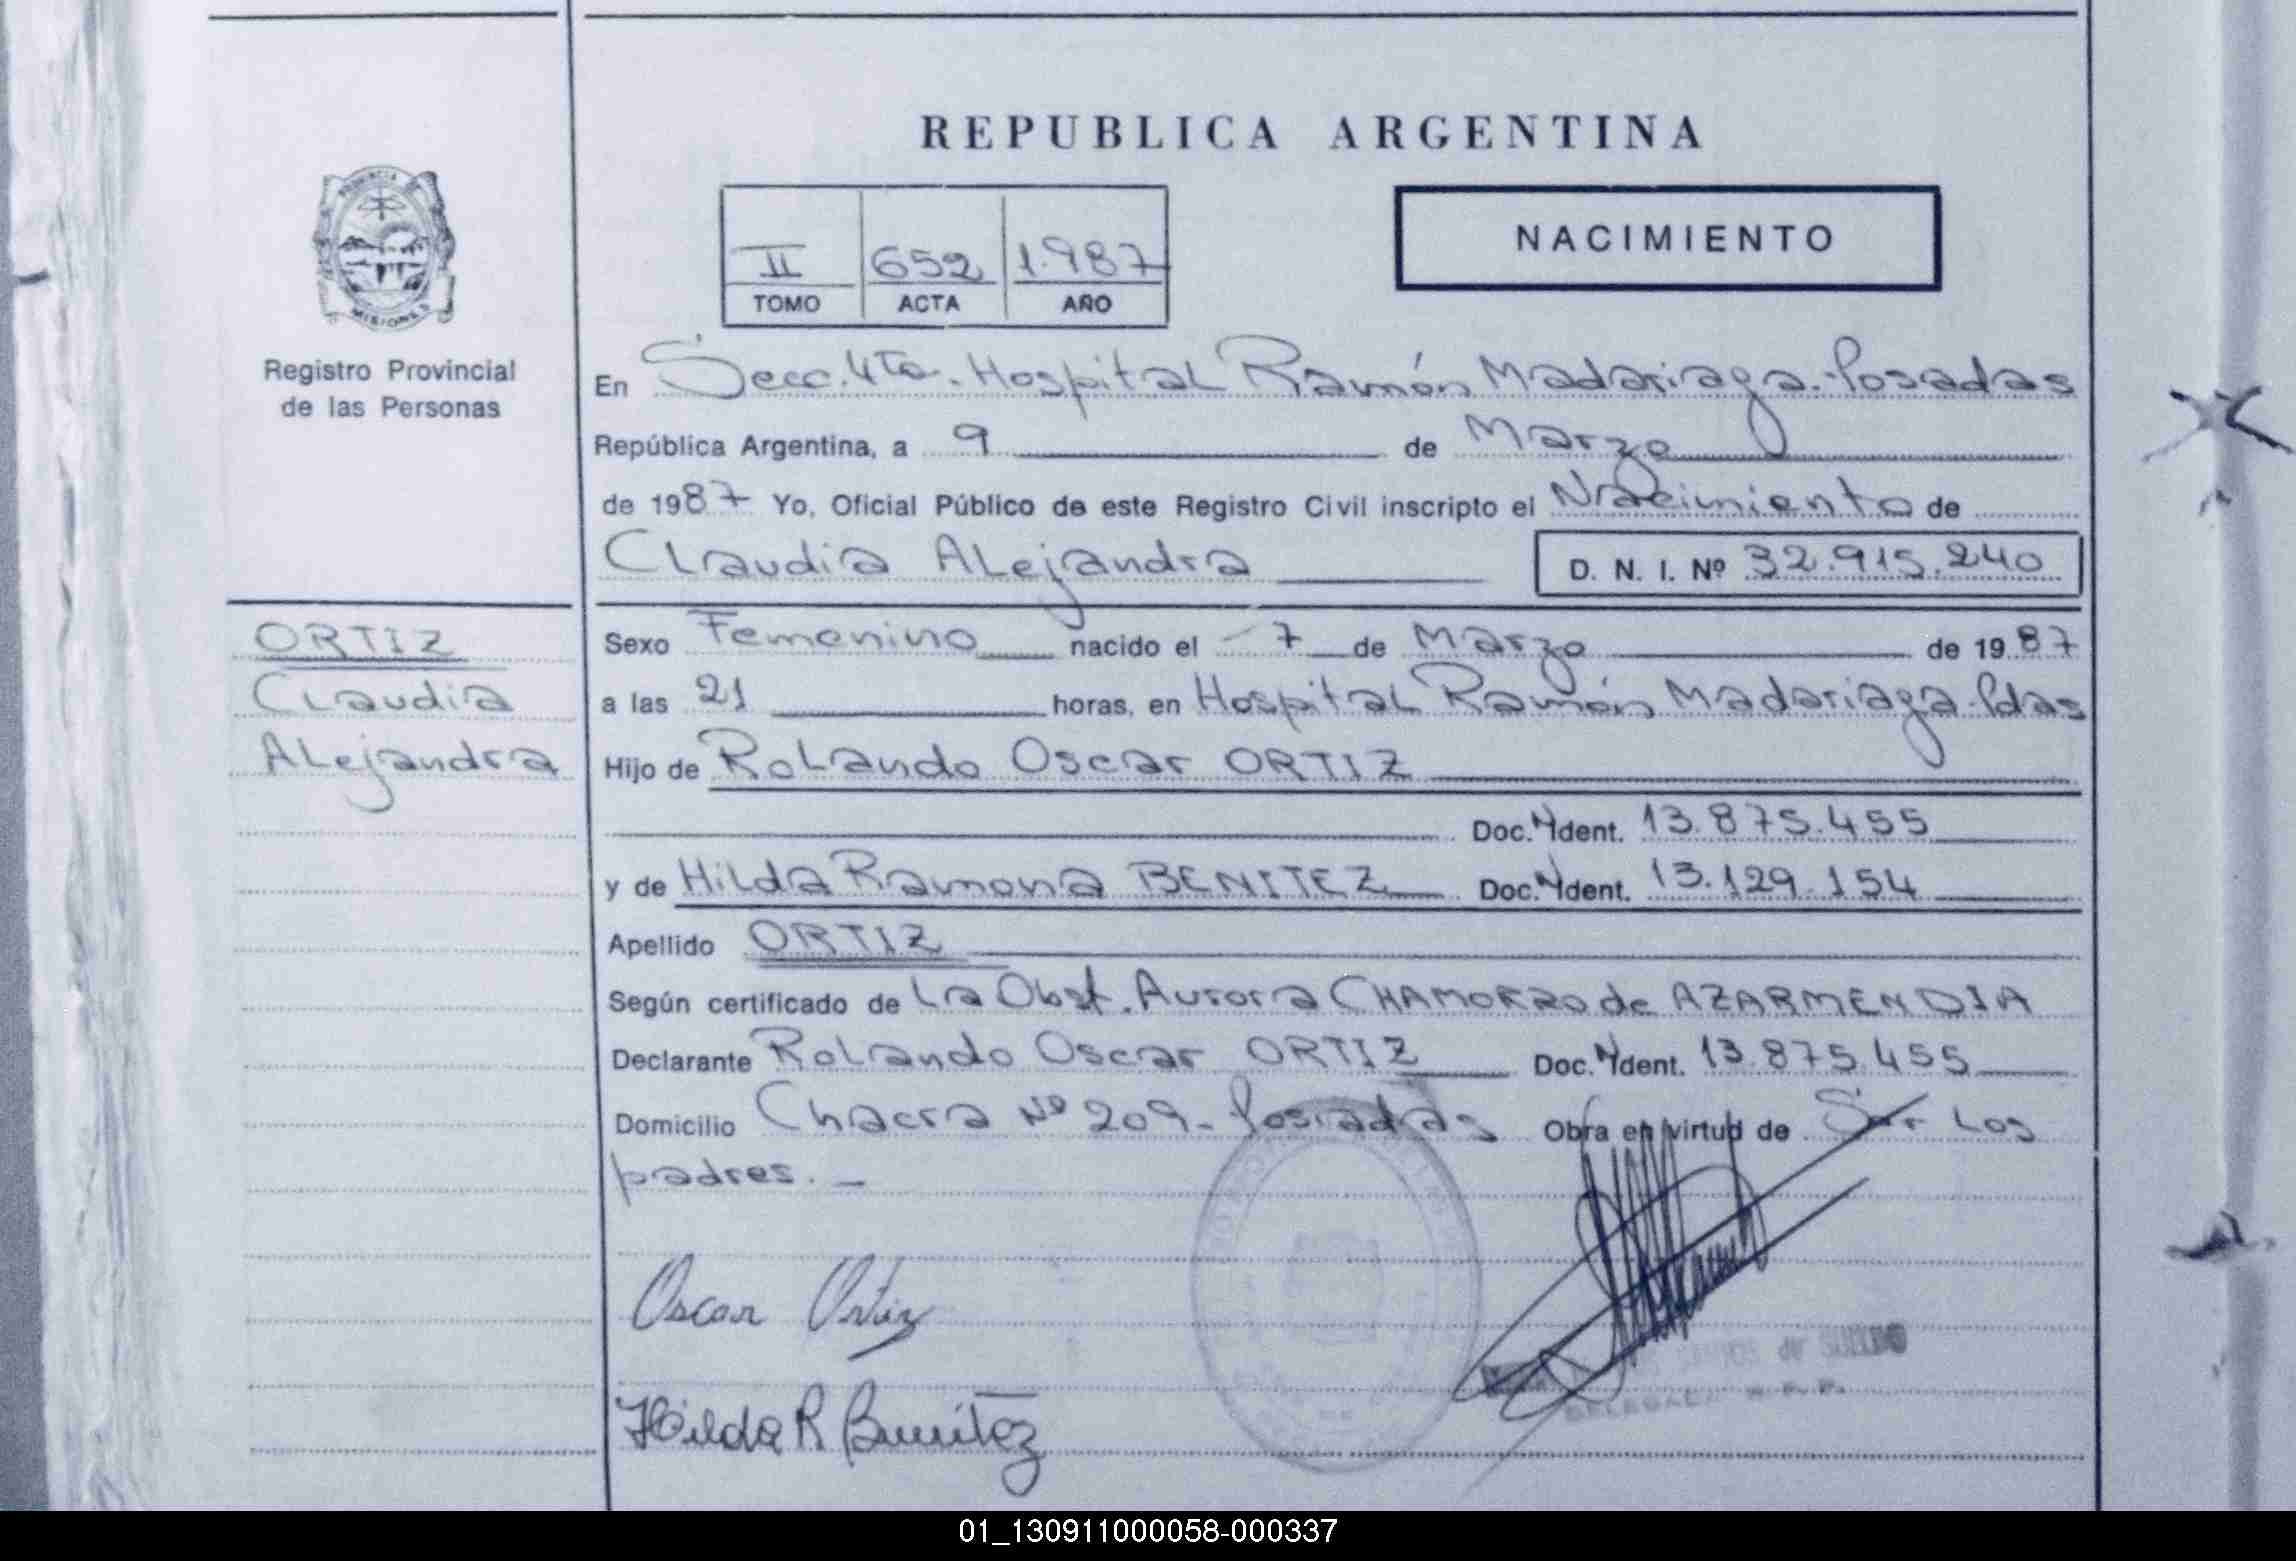 REPUBLICA ARGENTINA
PROVINCIA DE
MISIONES
Registro Provincial
de las Personas
II 652 1.987
TOMO ACTA AÑO
NACIMIENTO
En Secc. 4ta. Hospital Ramón Madariaga.-Posadas
República Argentina, a 9 de Marzo
de 1987 Yo, Oficial Público de este Registro Civil inscripto el Nacimiento de
Claudia Alejandra D. N. I. Nº 32.915.240
ORTIZ
Claudia
Alejandra
Sexo Femenino nacido el 7 de Marzo de 1987
a las 21 horas, en Hospital Ramón Madariaga-Pdas
Hijo de Rolando Oscar ORTIZ
Doc. Ident. 13.875.455
y de Hilda Ramona BENITEZ Doc. Ident. 13.129.154
Apellido ORTIZ
Según certificado de La Obst. Aurora CHAMORRO de AZARMENDIA
Declarante Rolando Oscar ORTIZ Doc. Ident. 13.875.455
Domicilio Chacra Nº 209.- Posadas Obra en virtud de Ser Los
padres.-
Oscar Ortiz
Hilda R Benítez
DELEGADA R. P. P.
01_130911000058-000337